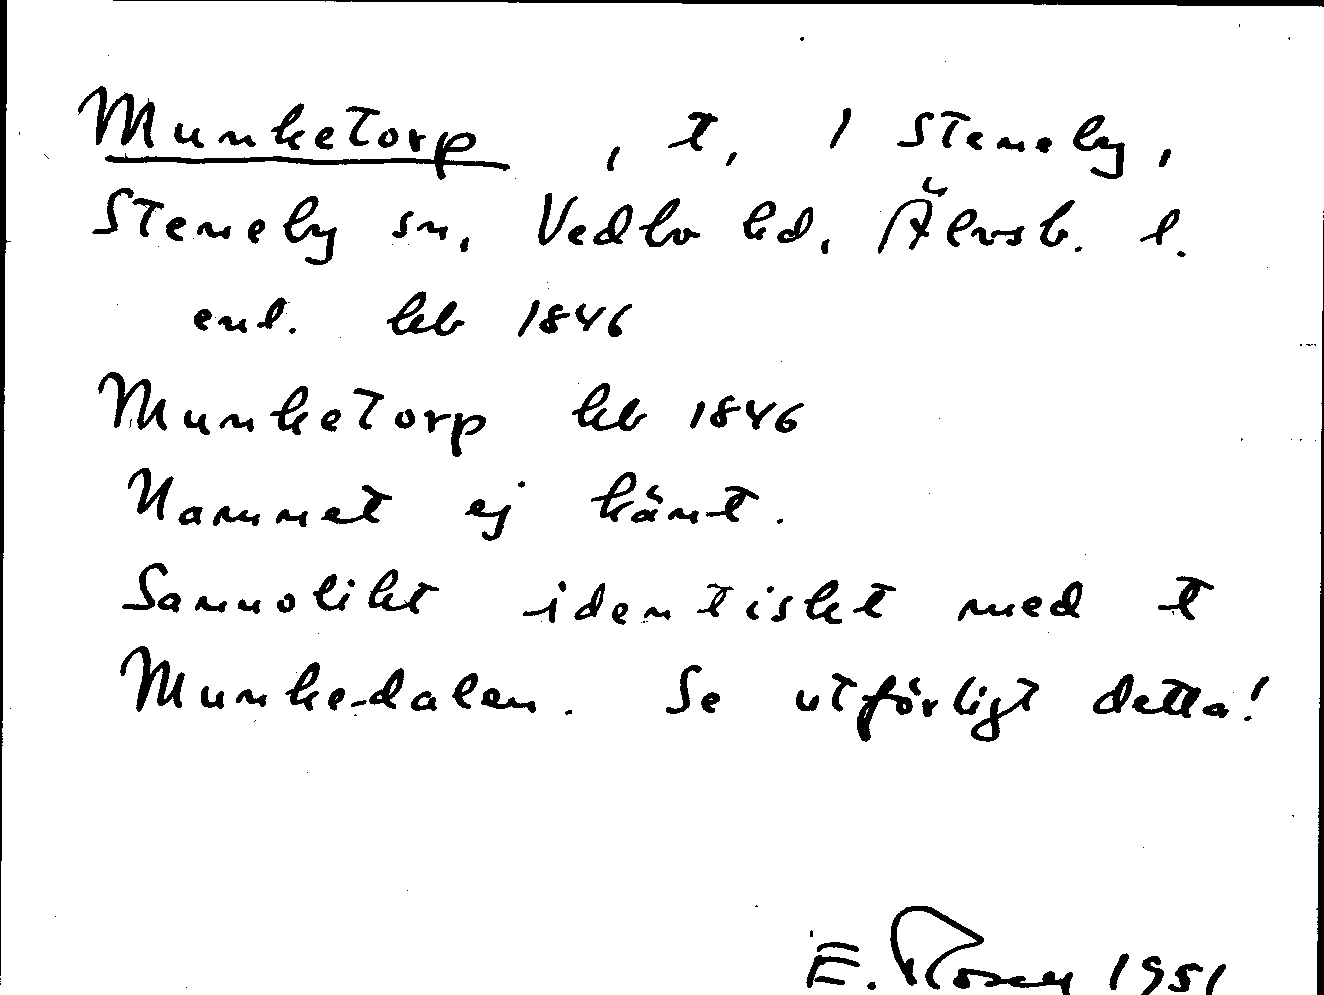 Munketorp, t, 1 Steneby,
Steneby sn, Vedbo hd, Älvsb. l.
enl. kb 1846
Munketorp kb 1846
Namnet ej känt.
Sannolikt identiskt med t
Munkedalen. Se utförligt detta!
E. Rosell 1951